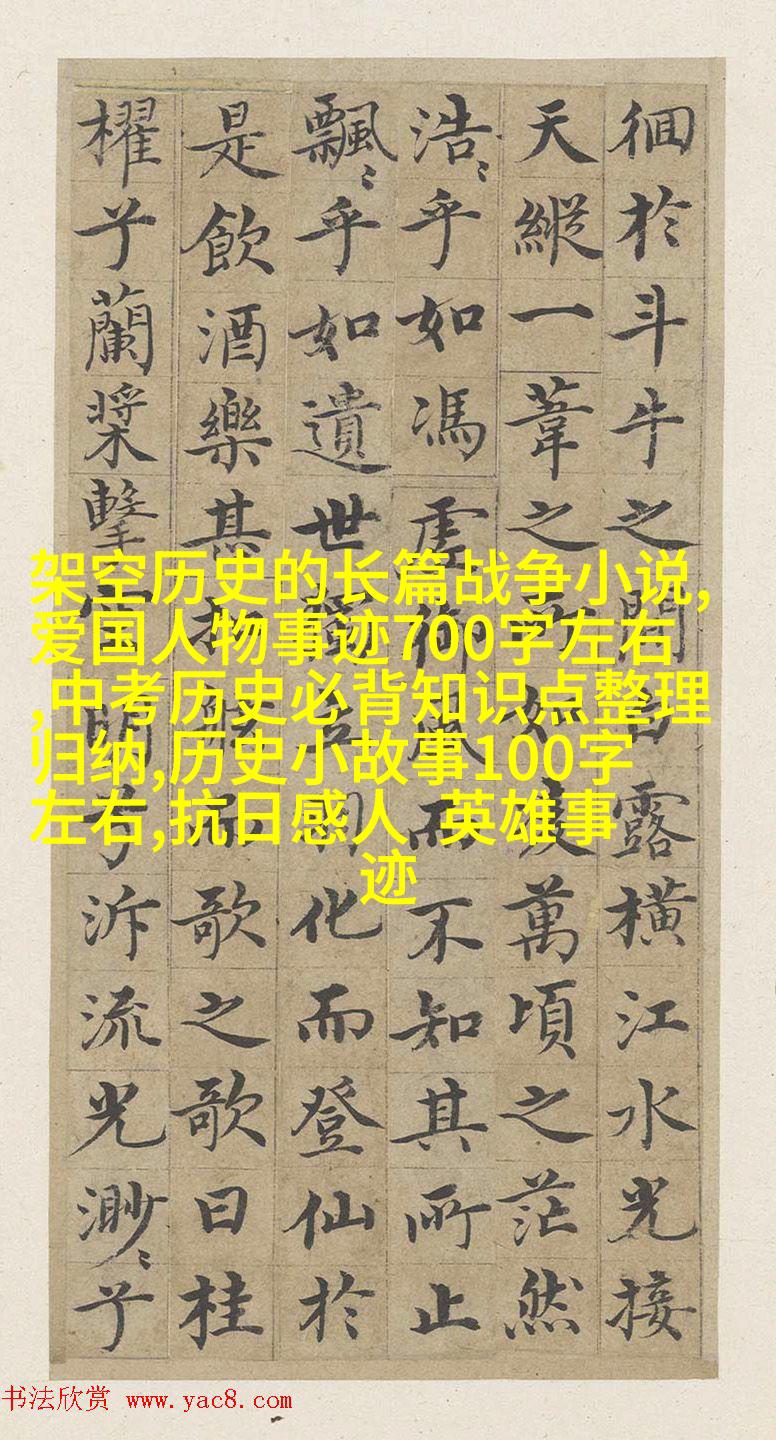 徊於斗牛之間白露橫江水光接
天縱一葦之所如凌萬頃之茫然
浩〻乎如馮虛御風而不知其所止
飄〻乎如遺世獨立羽化而登仙於
是飲酒樂甚扣舷而歌之歌曰桂
櫂兮蘭槳擊空明兮泝流光渺〻兮
架空历史的长篇战争小说,
爱国人物事迹700字左右
,中考历史必背知识点整理
归纳,历史小故事100字
左右,抗日感人 英雄事
迹
书法欣赏 www.yac8.com